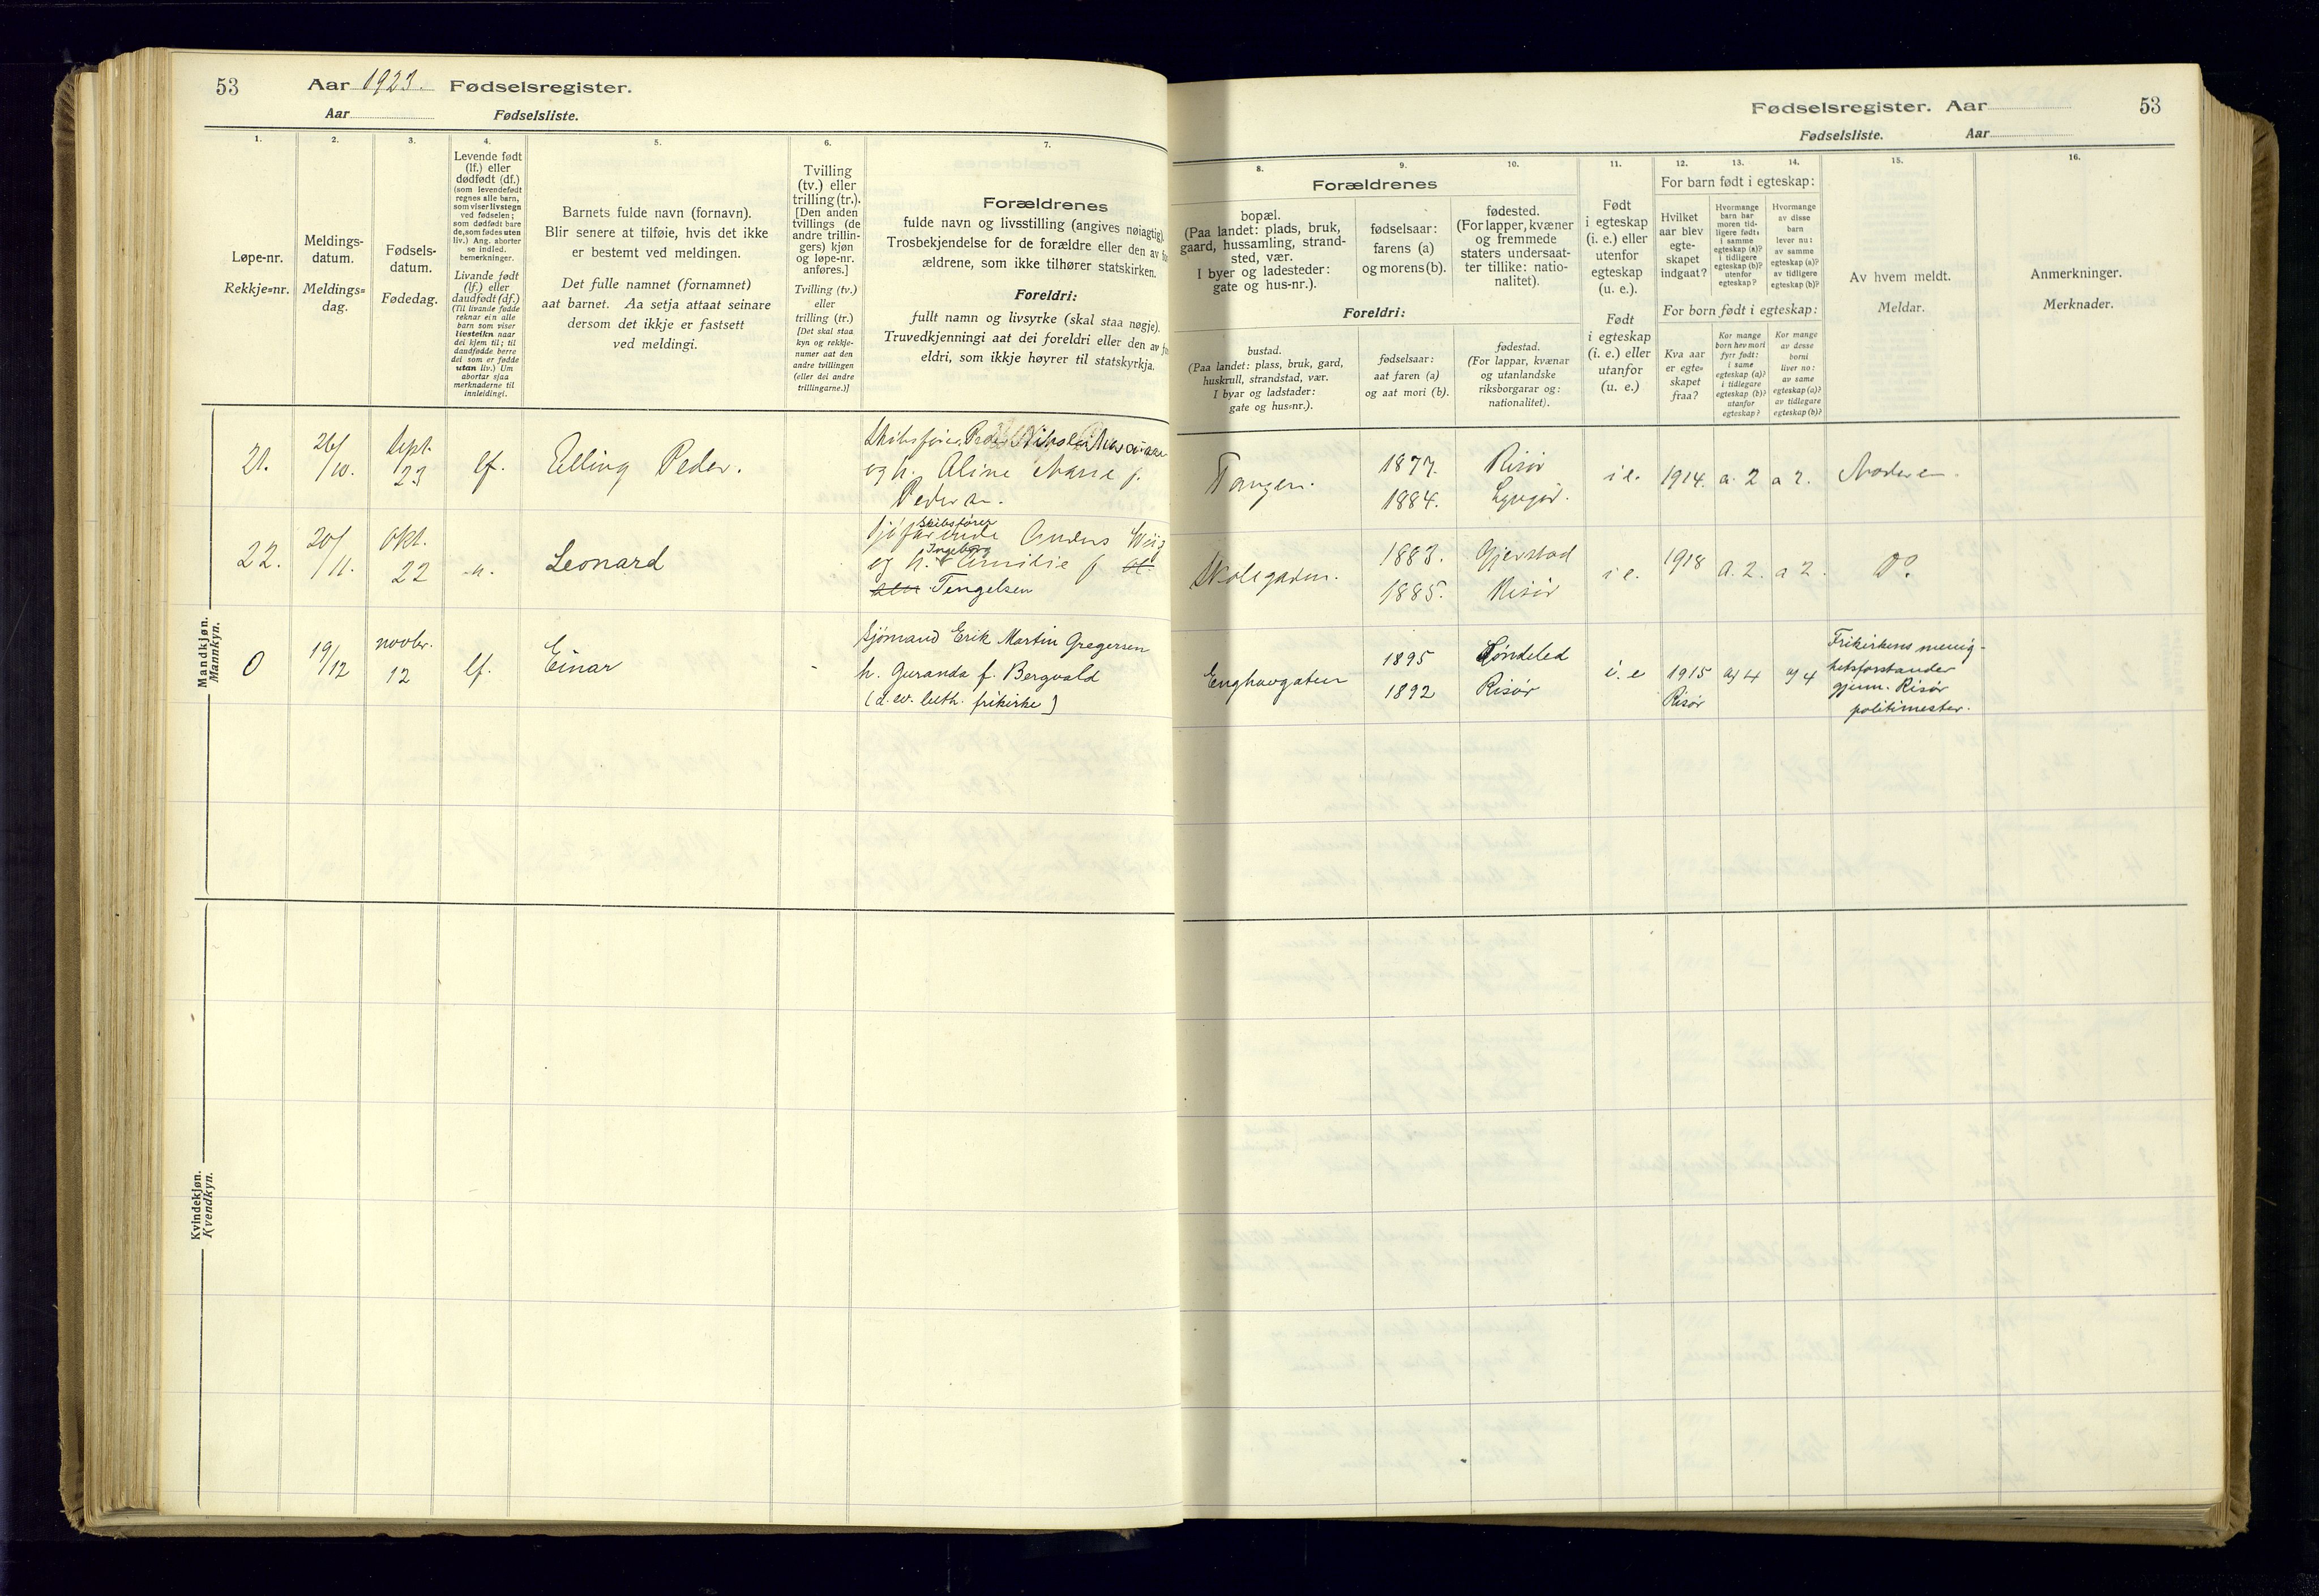 53
Aar 1923. Fødselsregister.
Aar Fødselsliste.
1.
2.
3.
4.
5.
6.
7.
Løpe-nr.
Rekkje=nr.
Meldings-
datum.
Meldings=
dag.
Fødsels-
datum.
Fødedag.
Levende født
(lf.) eller
dødfødt (df.)
(som levendefødt
regnes alle barn,
som viser livstegn
ved fødselen;
som dødfødt bare
de, som fødes uten
liv.) Ang. aborter
se indled.
bemerkninger.
Livande født
(lf.) eller
daudfødt (df.)
(Til livande fødde
reknar ein alle
barn som viser
livsteikn naar
dei kjem til; til
daudfødde berre
dei som er fødde
utan liv.) Um
abortar sjaa
merknaderne til
innleidingi.
Barnets fulde navn (fornavn).
Blir senere at tilføie, hvis det ikke
er bestemt ved meldingen.
Det fulle namnet (fornamnet)
aat barnet. Aa setja attaat seinare
dersom det ikkje er fastsett
ved meldingi.
Tvilling
(tv.) eller
trilling (tr.).
[Den anden
tvillings (de
andre trillin-
gers) kjøn
og løpe-nr.
anføres.]
Tvilling (tv.)
eller
trilling (tr.)
[Det skal staa
kyn og rekkje-
numer aat den
andre tvillingen
(eller dei andre
trillingarne.)]
Forældrenes
fulde navn og livsstilling (angives nøiagtig).
Trosbekjendelse for de forældre eller den av for
ældrene, som ikke tilhører statskirken.
Foreldri:
fullt namn og livsyrke (skal staa nøgje).
Truvedkjenningi aat dei foreldri eller den av
eldri, som ikkje høyrer til statskyrkja.
Mandkjøn.
Mannkyn.
21. 26/10. Sept. 23 lf. Elling Peder.
Skibsfører
og h. Aline f.
22. 20/11. Okt. 22 -"- Leonard
Skibsfører
Sjøfarende Anders Wiig
Ingeborg
og h. Amilie f
Tengelsen
0 19/12 novbr. 12 lf. Einar -
Sjømand Erik Martin Gregersen
h. Guranda f. Bergvald
(d. ev. luth. frikirke)
Kvindekjøn.
Kvendkyn.
Fødselsregister. Aar
53
Fødselsliste. Aar
8.
9.
10.
11.
12.
13.
14.
15.
16.
Forældrenes
bopæl.
(Paa landet: plads, bruk,
gaard, hussamling, strand-
sted, vær.
I byer og ladesteder:
gate og hus-nr.).
fødselsaar:
farens (a)
og morens (b).
fødested.
(For lapper, kvæner
og fremmede
staters undersaat-
ter tillike: natio-
nalitet).
Foreldri:
bustad.
(Paa landet: plass, bruk, gard,
huskrull, strandstad, vær.
I byar og ladstader:
gate og hus=nr.).
fødselsaar:
aat faren (a)
og aat mori (b).
fødestad.
(For lappar, kvænar
og utanlandske
riksborgarar og:
nationalitet).
Født
i egteskap
(i. e.) eller
utenfor
egteskap
(u. e.).
Født
i egteskap
(i. e.) eller
utanfor
(u. e.)
For barn født i egteskap:
Hvilket
aar blev
egte-
skapet
indgaat?
Hvormange
barn har
moren tid-
ligere født:
i samme
egteskap (a)?
i tidligere
egteskap (b)?
utenfor
egteskap?
Hvormange
av disse
barn
lever nu:
av samme
egteskap (a)?
av tidligere
egteskap (b)?
For born født i egteskap:
Kva aar
er egte=
skapet
fraa?
Kor mange
born hev mori
fyrr født:
i same
egteskap (a)?
i tidlegare
egteskap (b)?
utanfor
egteskap?
Kor mange
av desse
borni
liver no:
av same
egteskap (a)?
av tidlegare
egteskap (b)?
Av hvem meldt.
Meldar.
Anmerkninger.
Merknader.
Tangen. 1877. Risør
1884. Lyngør.
i e. 1914. a. 2 a 2. Moderen.
Skolegaten. 1883. Gjerstad
1885. Risør
i e. 1918 a. 2. a 2. Do.
Enghavgaten 1895 Søndeled
1892 Risør
i. e 1915 a) 4 a) 4
Risør
Frikirkens menig-
hetsforstander
gjenn. Risør
politimester.